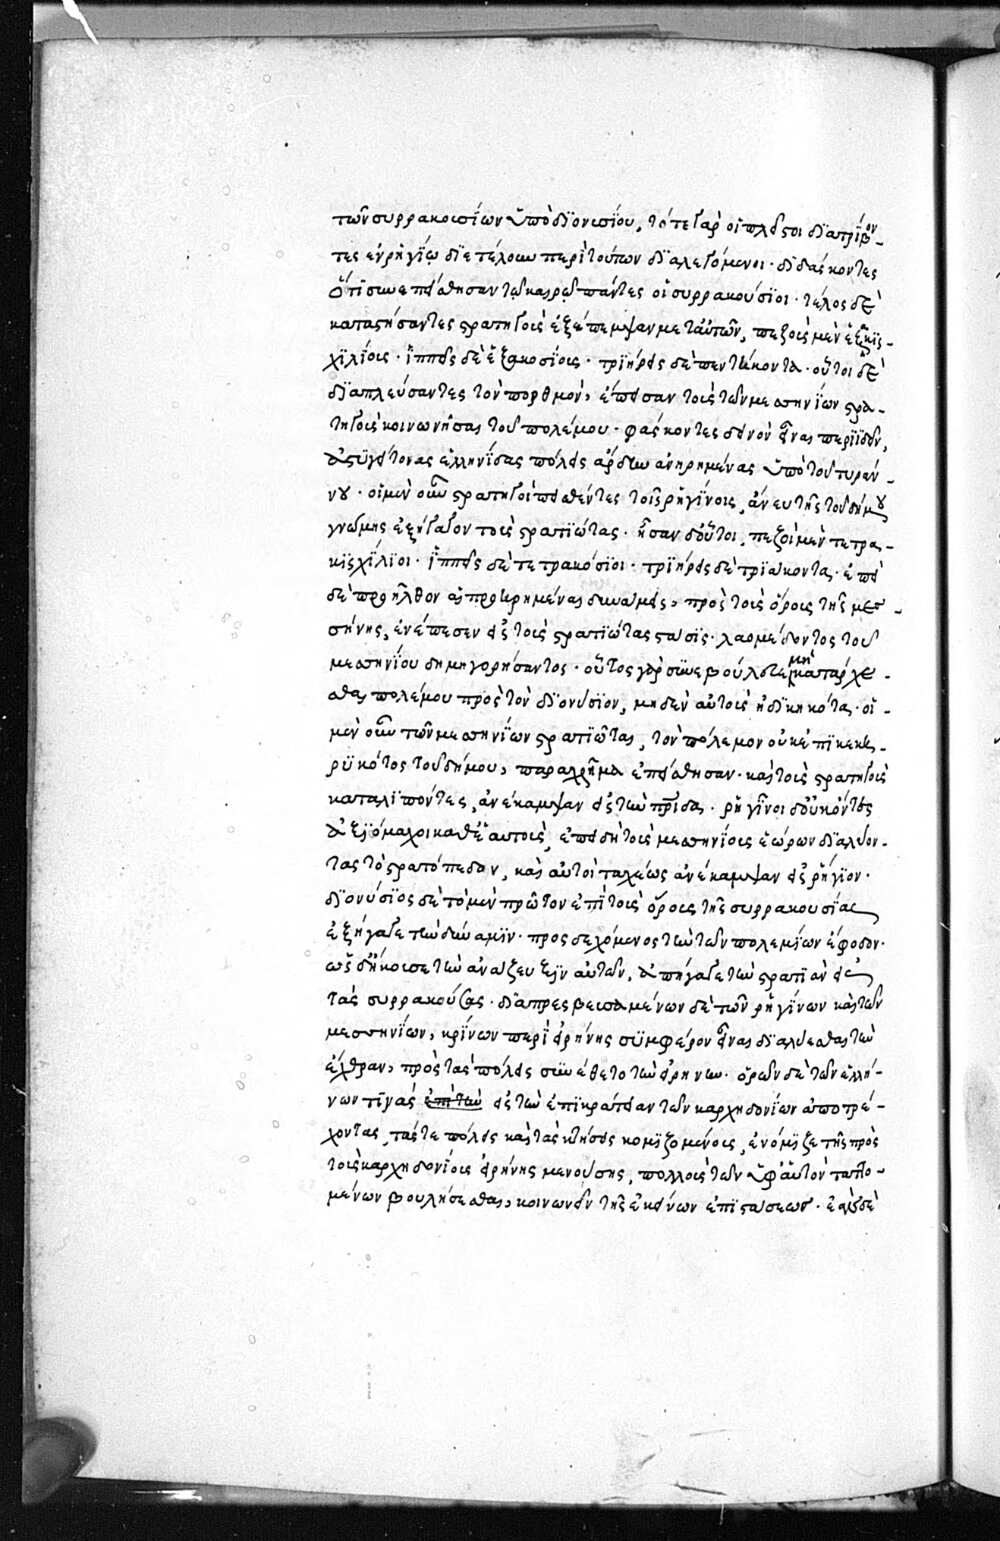 τῶν συρρακουσίων ὑπὸ διονυσίου, τότε γὰρ οἱ πλεῖστοι διατρίβον-
τες ἐν ῥηγίῳ διετέλουν περὶ τούτων διαλεγόμενοι· διδάσκοντες
ὅτι συνεπιθήσονται τῷ καιρῷ πάντες οἱ συρρακούσιοι· τέλος δὲ
καταστήσαντες στρατηγοὺς ἐξέπεμψαν μετ' αὐτῶν, πεζοὺς μὲν ἑξακισ-
χιλίους· ἱππεῖς δὲ ἑξακοσίους· τριήρεις δὲ πεντήκοντα· οὗτοι δὲ
διαπλεύσαντες τὸν πορθμὸν, ἔπεισαν τοὺς τῶν μεσηνίων στρα-
τηγοὺς κοινωνῆσαι τοῦ πολέμου· φάσκοντες δεινὸν εἶναι περιϊδεῖν,
ἀστυγείτονας ἑλληνίδας πόλεις ἄρδην ἀνηρημένας ὑπὸ τοῦ τυράν-
νου· οἱ μὲν οὖν στρατηγοὶ πεισθέντες τοῖς ῥηγίνοις, ἄνευ τῆς τοῦ δήμου
γνώμης ἐξήγαγον τοὺς στρατιώτας· ἦσαν δ' οὗτοι, πεζοὶ μὲν τετρα-
κισχίλιοι· ἱππεῖς δὲ τετρακόσιοι· τριήρεις δὲ τριάκοντα· ἐπεὶ
δὲ προῆλθον αἱ προειρημέναι δυνάμεις, πρὸς τοὺς ὅρους τῆς μεσ-
σήνης, ἐνέπεσεν εἰς τοὺς στρατιώτας στάσις· λαομέδοντος τοῦ
μεσηνίου δημηγορήσαντος· οὗτος γὰρ συνεβούλευε μὴ κατάρχε-
σθαι πολέμου πρὸς τὸν διονύσιον, μηδὲν αὐτοὺς ἠδικηκότα· οἱ
μὲν οὖν τῶν μεσηνίων στρατιῶται, τὸν πόλεμον οὐκ ἐπικεκυ-
ρικότος τοῦ δήμου, παραχρῆμα ἐπείσθησαν· καὶ τοὺς στρατηγοὺς
καταλιπόντες, ἀνέκαμψαν εἰς τὴν πατρίδα· ῥηγῖνοι δ' οὐκ ὄντες
ἀξιόμαχοι καθ' ἑαυτοὺς, ἐπειδὴ τοὺς μεσηνίους ἑώρων διαλύον-
τας τὸ στρατόπεδον, καὶ αὐτοὶ ταχέως ἀνέκαμψαν εἰς ῥήγιον·
διονύσιος δὲ τὸ μὲν πρῶτον ἐπὶ τοὺς ὅρους τῆς συρρακουσίας
ἐξήγαγε τὴν δύναμιν· προσδεχόμενος τὴν τῶν πολεμίων ἔφοδον·
ὡς δ' ἤκουσε τὴν ἀνάζευξιν αὐτῶν, ἀπήγαγε τὴν στρατιὰν εἰς
τὰς συρρακούσας· διαπρεσβευσαμένων δὲ τῶν ῥηγίνων καὶ τῶν
μεσσηνίων, κρίνων περὶ εἰρήνης συμφέρον εἶναι διαλύεσθαι τὴν
ἔχθραν, πρὸς τὰς πόλεις συνέθετο τὴν εἰρήνην· ὁρῶν δὲ τῶν ἑλλή-
νων τινὰς ἐπὶ τὴν εἰς τὴν ἐπικράτειαν τῶν καρχηδονίων ἀποτρέ-
χοντας, τάς τε πόλεις καὶ τὰς κτήσεις κομιζομένους, ἐνόμιζε τῆς πρὸς
τοὺς καρχηδονίους εἰρήνης μενούσης, πολλοὺς τῶν ὑφ' αὑτὸν ταττο-
μένων βουλήσεσθαι, κοινωνεῖν τῆς ἐκείνων ἐπιστάσεως· ἐὰν δὲ